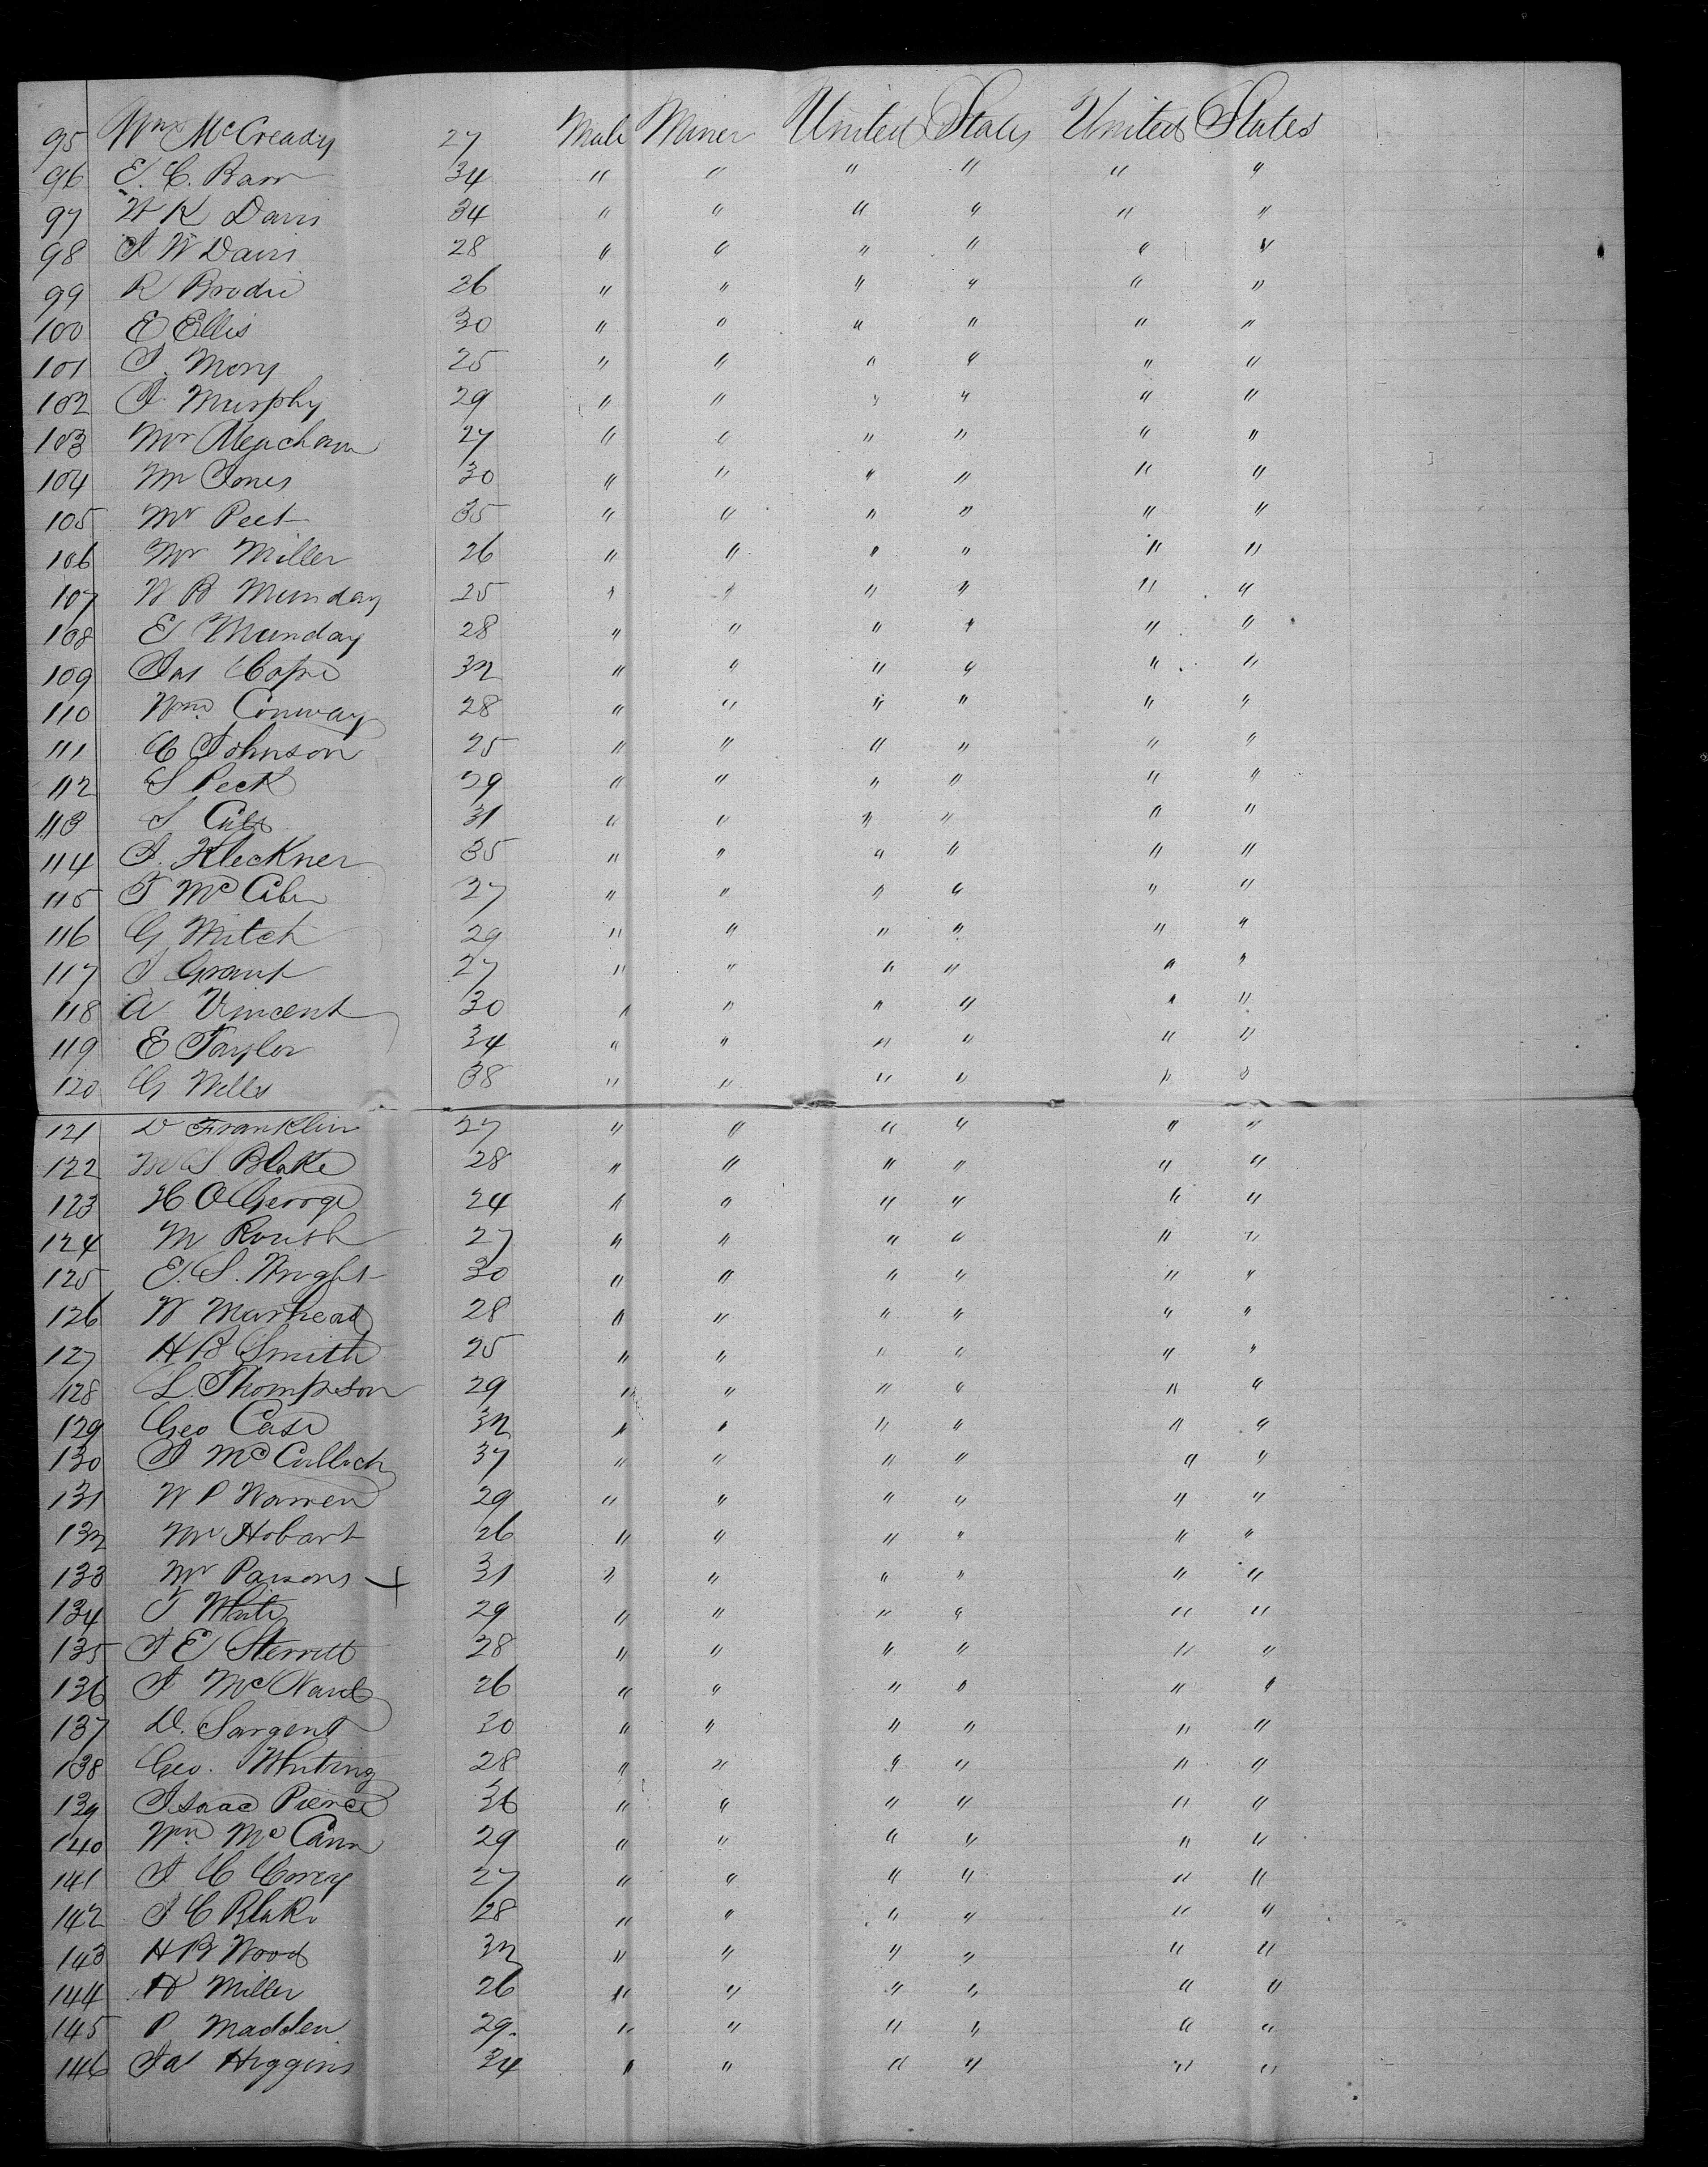 95 Wm McCready 27 Male Miner United States United States
96 E. C. Barr 34 " " " " " "
97 W K Davis 34 " " " " " "
98 J W Davis 28 " " " " " "
99 R Brodie 26 " " " " " "
100 E Ellis 30 " " " " " "
101 J. Mory 25 " " " " " "
102 J. Murphy 29 " " " " " "
103 Mr Meacham 27 " " " " " "
104 Mr Jones 30 " " " " " "
105 Mr Peet 35 " " " " " "
106 Mr Miller 26 " " " " " "
107 W B Munday 25 " " " " " "
108 E Munday 28 " " " " " "
109 Jas Cope 32 " " " " " "
110 Wm Conway 28 " " " " " "
111 C Johnson 25 " " " " " "
112 S Peck 29 " " " " " "
113 S 31 " " " " " "
114 J. Kleckner 35 " " " " " "
115 J 27 " " " " " "
116 G Mitch 29 " " " " " "
117 J Grant 27 " " " " " "
118 A Vincent 30 " " " " " "
119 E Taylor 34 " " " " " "
120 G Wells 38 " " " " " "
121 D Franklin 27 " " " " " "
122 M S Blake 28 " " " " " "
123 H O George 24 " " " " " "
124 M Roush 27 " " " " " "
125 E. S. Wright 30 " " " " " "
126 W Murhead 28 " " " " " "
127 H B Smith 25 " " " " " "
128 L. Thompson 29 " " " " " "
129 Geo Case 32 " " " " " "
130 J McCulloch 37 " " " " " "
131 W P Warren 29 " " " " " "
132 Mr Hobart 26 " " " " " "
133 Mr Parsons + 31 " " " " " "
134 T White 29 " " " " " "
135 J E Sterrett 28 " " " " " "
136 J McNard 26 " " " " " "
137 D. Sargent 30 " " " " " "
138 Geo. Whiting 28 " " " " " "
139 Isaac Pierce 36 " " " " " "
140 Wm McCann 29 " " " " " "
141 J C Corey 27 " " " " " "
142 J C Blake 28 " " " " " "
143 H B Wood 32 " " " " " "
144 H Miller 26 " " " " " "
145 P Madden 29. " " " " " "
146 Jas Higgins 34 " " " " " "